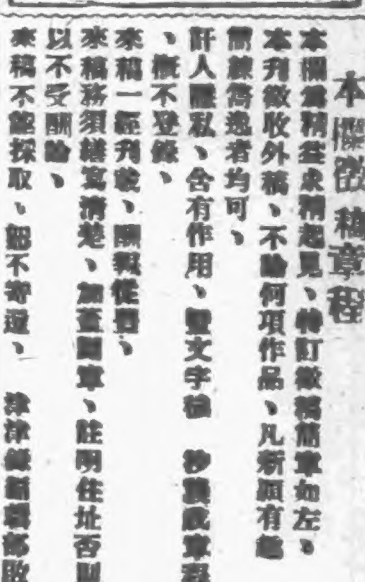 本欄徵稿章程
本欄為精益求精起見、特訂徵稿簡章如左、
本刊徵收外稿、不論何項作品、凡新穎有趣
簡練雋逸者均可、
訐人隱私、含有作用、文字
、概不登錄、
來稿一經刊載、酬報從豐、
來稿務須繕寫清楚、加蓋圖章、註明住址否則
以不受酬論、
來稿不能採取、恕不寄還、 津津編輯部啟